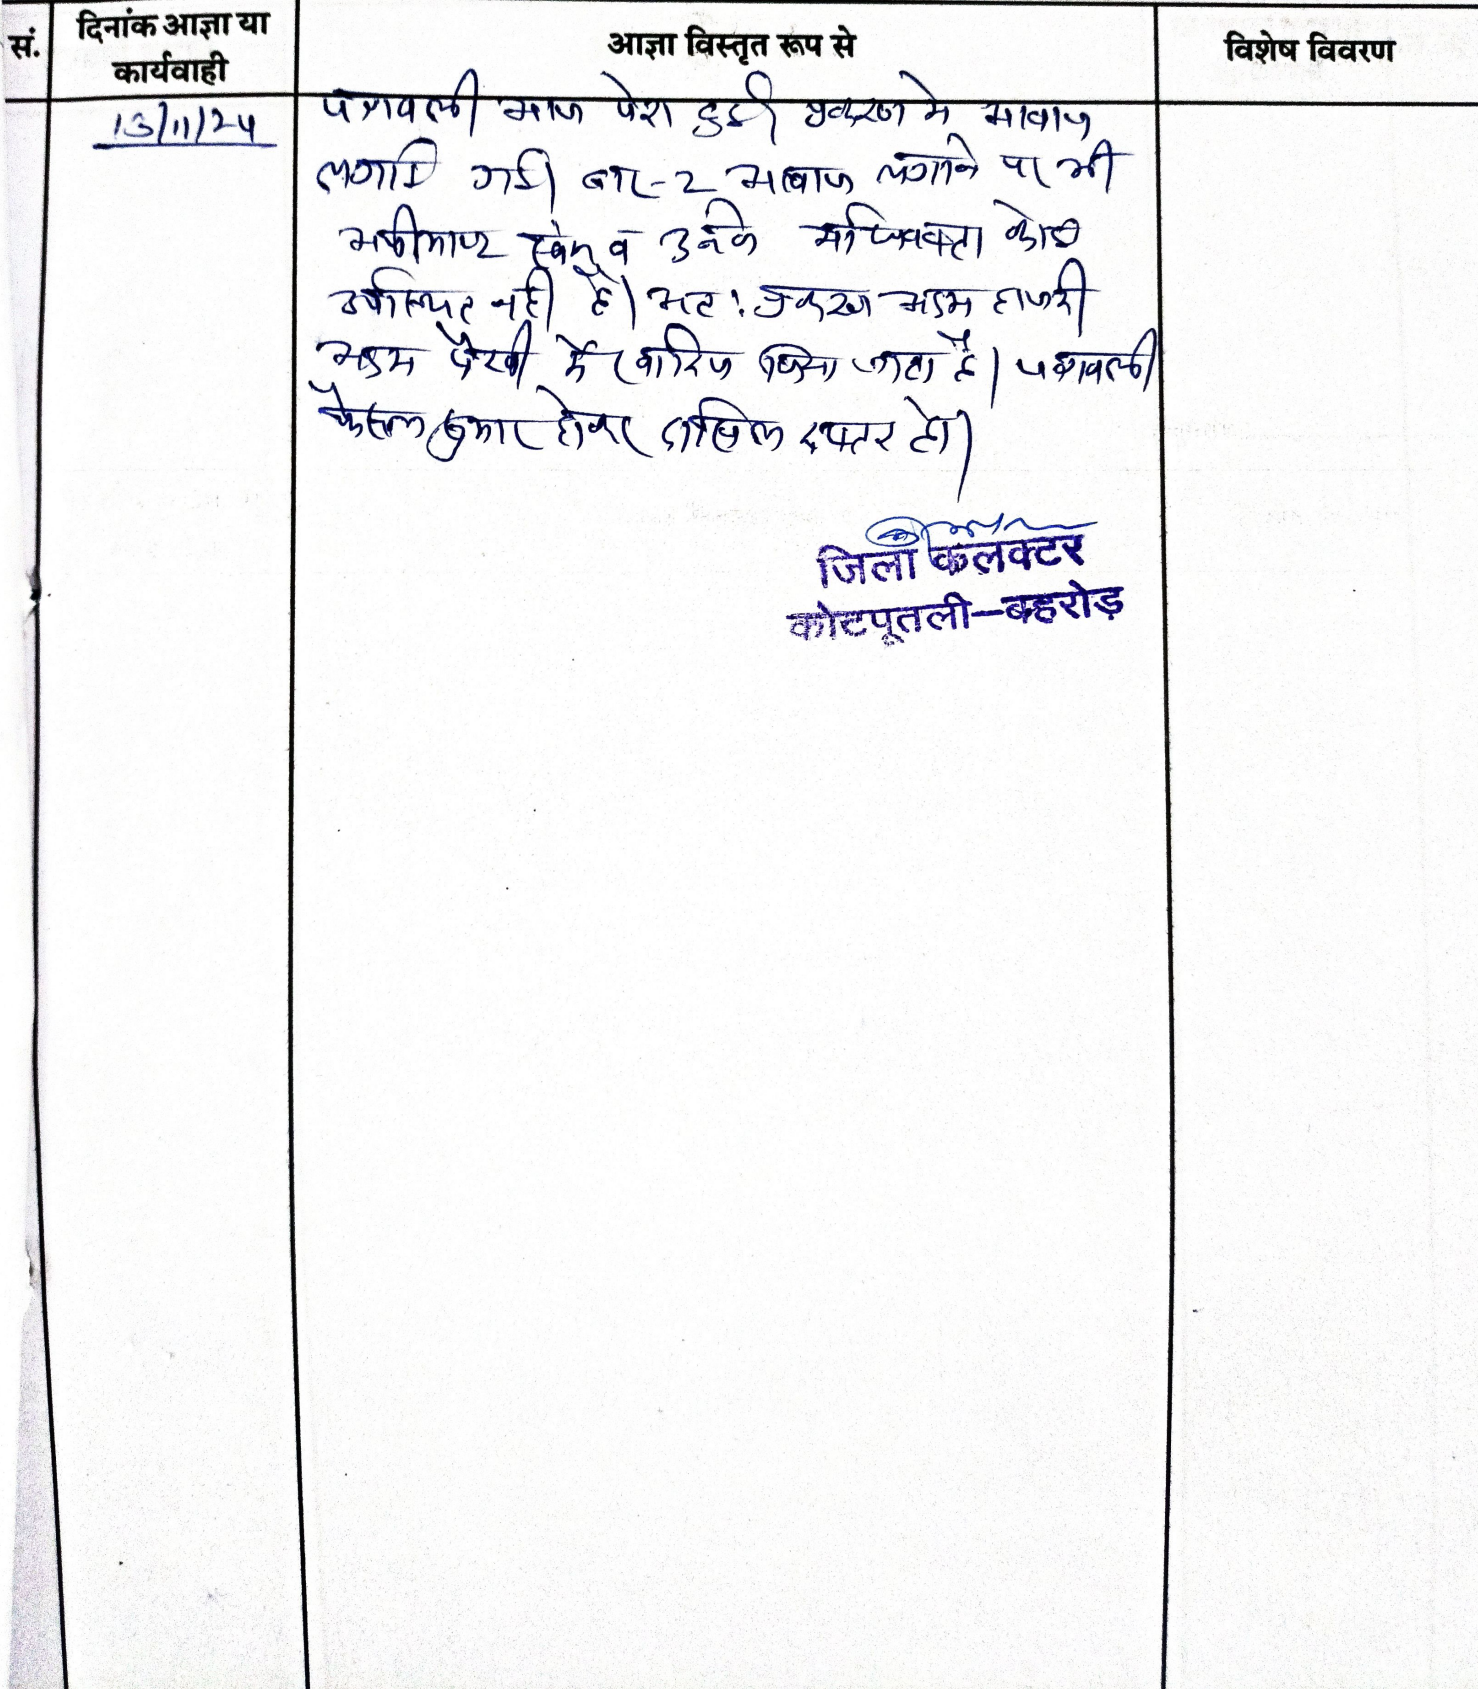 सं. दिनांक आज्ञा या कार्यवाही आज्ञा विस्तृत रूप से विशेष विवरण
13/11/24 पत्रावली आज पेश हुई। प्रकरण में आवाज
लगाई गई। बार-2 आवाज लगाने पर भी
अपीलान्ट स्वंय व उनके अधिवक्ता कोई
उपस्थित नहीं है। अतः प्रकरण अदम हाजरी
अदम पैरवी में खारिज किया जाता है। पत्रावली
फैसल शुमार होकर दाखिल दफ्तर हो।
जिला कलक्टर
कोटपूतली-बहरोड़